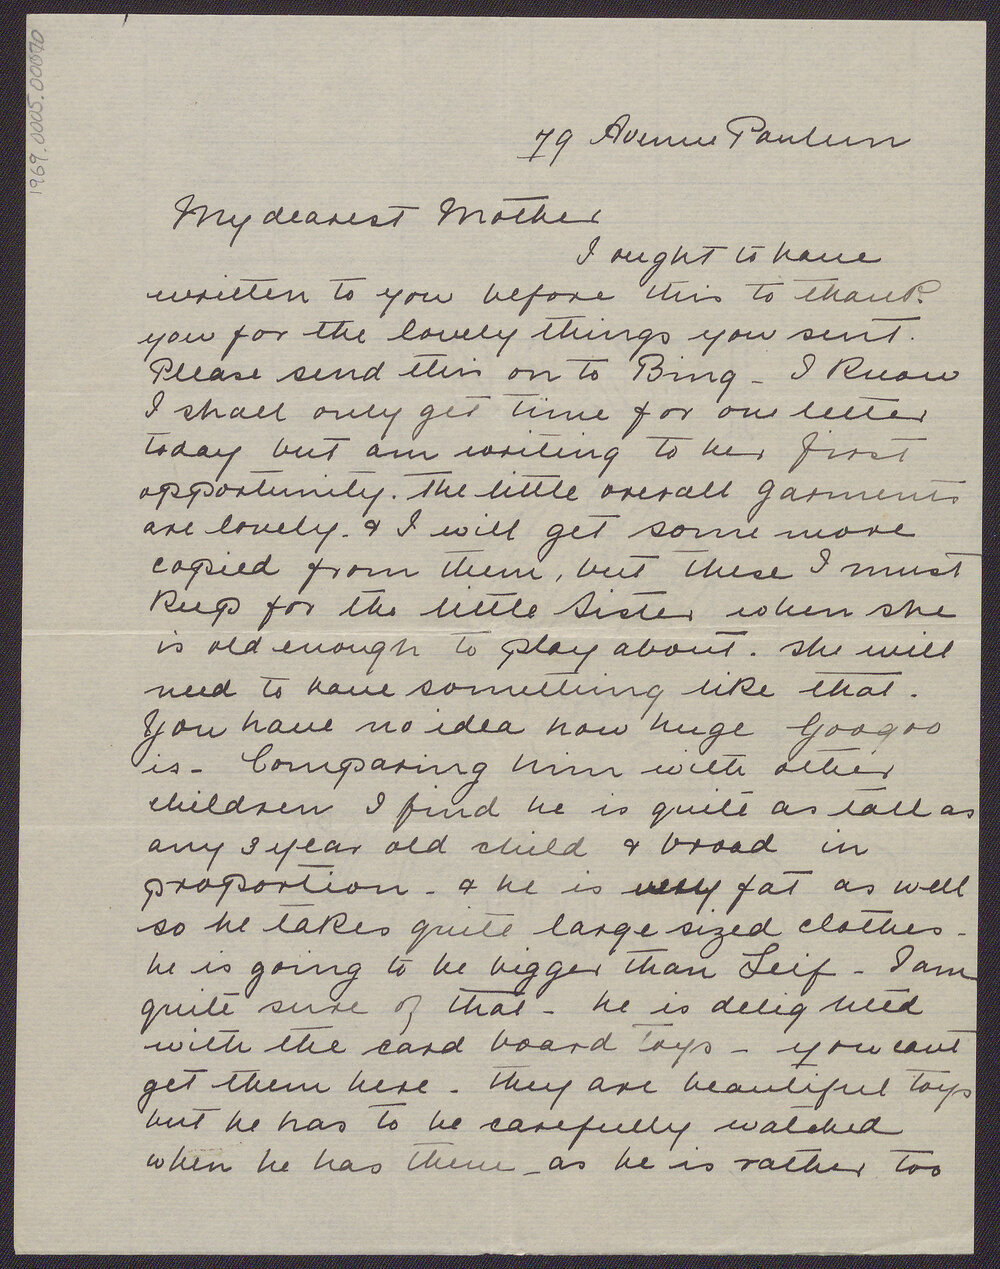 1969.0005.00070
79 Avenue Paulun
My dearest Mother
I ought to have
written to you before this to thank
you for the lovely things you sent.
Please send this on to Bing - I know
I shall only get time for one letter
today but am writing to her first
opportunity. The little overall garments
are lovely. & I will get some more
copied from them, but these I must
keep for the little Sister when she
is old enough to play about. She will
need to have something like that.
You have no idea how huge Googoo
is - Comparing him with other
children I find he is quite as tall as
any 3 year old child & broad in
proportion - & he is very fat as well
so he takes quite large sized clothes -
he is going to be bigger than Leif - I am
quite sure of that - he is delighted
with the card board toys - you cant
get them here - they are beautiful toys
but he has to be carefully watched
when he has them - as he is rather too